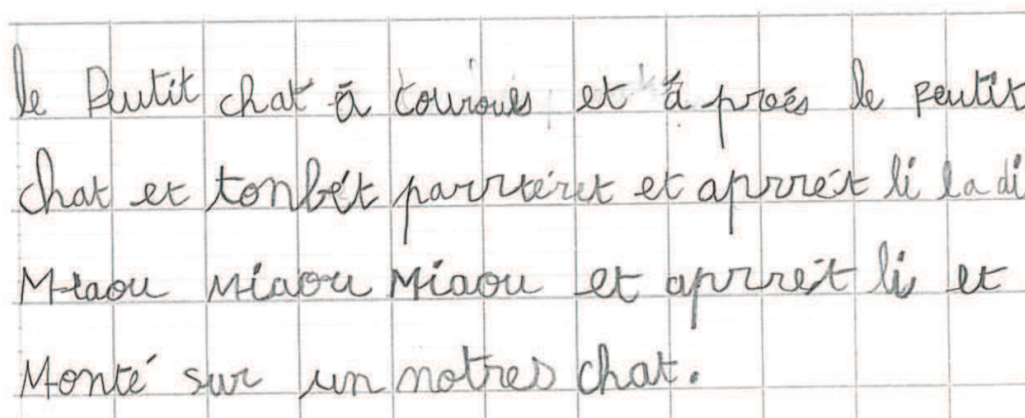 le Peutit chat à couroues et à prœs le peutit
chat et tonbét parrtéret et aprrét li la di
Miaou Miaou Miaou et aprrét li et
Monté sur un notres chat.